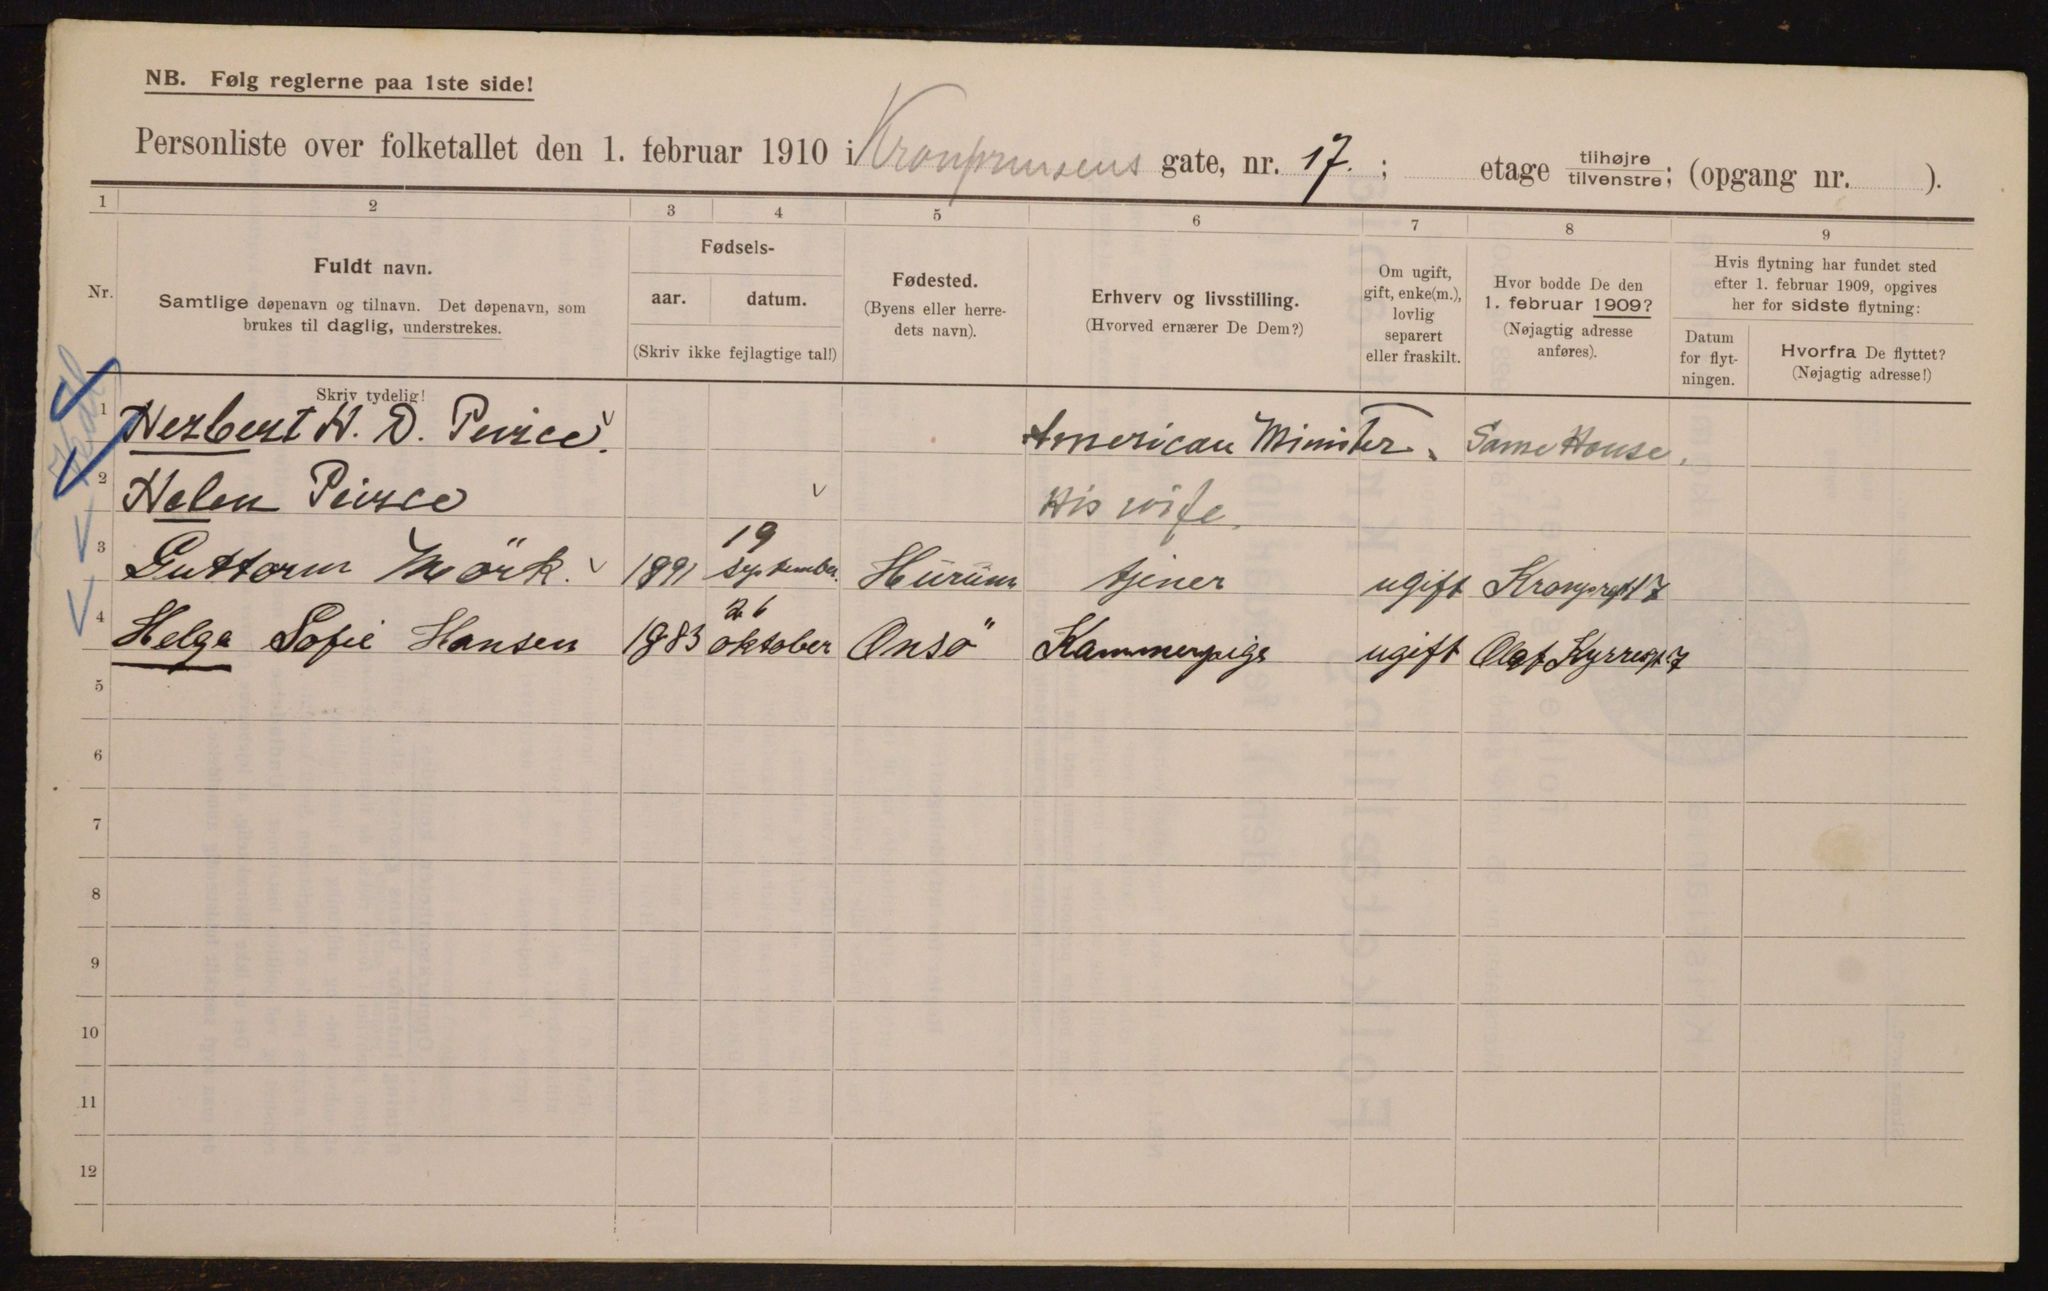 NB. Følg reglerne paa 1ste side!
Personliste over folketallet den 1. februar 1910 i Kronprinsens gate, nr. 17. ; etage tilhøjre/tilvenstre; (opgang nr. ).
1 2 3 4 5 6 7 8 9
Nr.
Fuldt navn.
Samtlige døpenavn og tilnavn. Det døpenavn, som
brukes til daglig, understrekes.
Skriv tydelig!
Fødsels-
aar. datum.
(Skriv ikke fejlagtige tal!)
Fødested.
(Byens eller herre-
dets navn).
Erhverv og livsstilling.
(Hvorved ernærer De Dem?)
Om ugift,
gift, enke(m.),
lovlig
separert
eller fraskilt.
Hvor bodde De den
1. februar 1909?
(Nøjagtig adresse
anføres).
Hvis flytning har fundet sted
efter 1. februar 1909, opgives
her for sidste flytning:
Datum
for flyt-
ningen.
Hvorfra De flyttet?
(Nøjagtig adresse!)
1 Herbert H. D. Peirce. American Minister. Same House.
2 Helen Peirce His wife.
3 Guttorm Mörk. 1891 19 september. Hurum tjener ugift Kronprgt 17
4 Helga Sofie Hansen 1883 26 oktober Onsö Kammerpige ugift Olaf Kyrresgt. 7
5
6
7
8
9
10
11
12